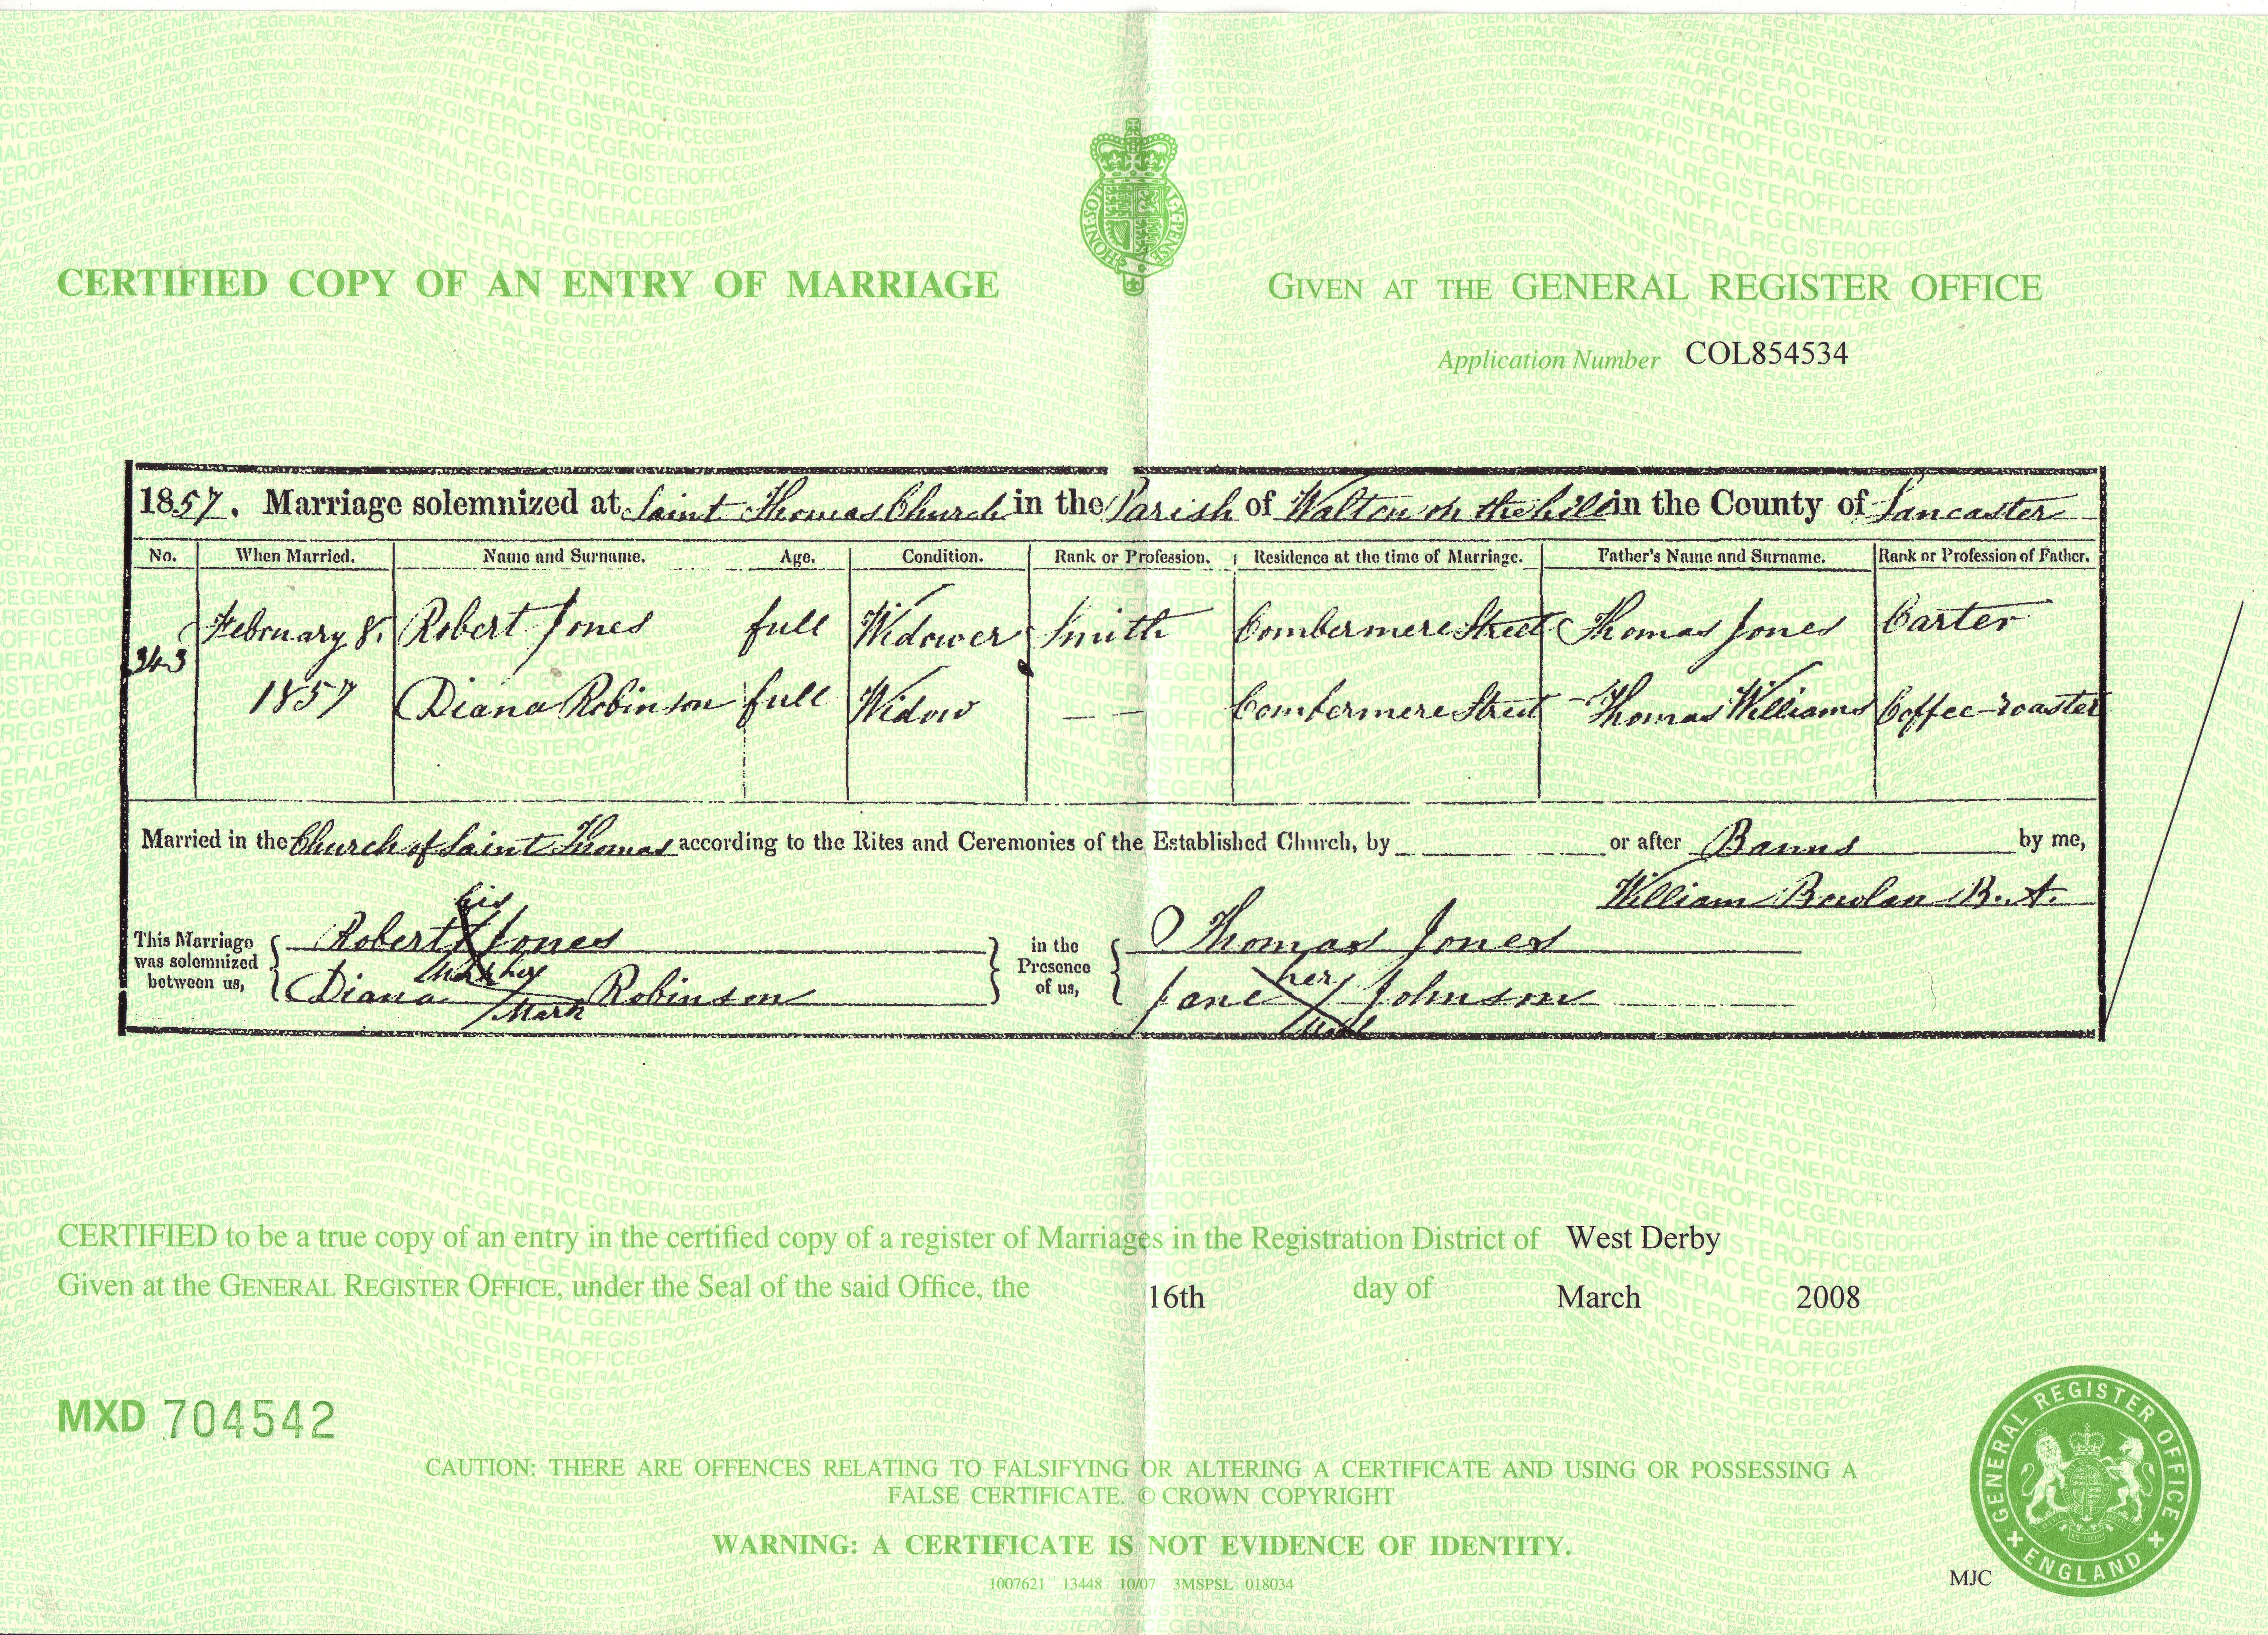 CERTIFIED COPY OF AN ENTRY OF MARRIAGE
GIVEN AT THE GENERAL REGISTER OFFICE
HONI·SOIT
Application Number COL854534
1857. Marriage solemnized at Saint Thomas Church in the Parish of Walton on the hill in the County of Lancaster
No. When Married. Name and Surname. Age. Condition. Rank or Profession. Residence at the time of Marriage. Father's Name and Surname. Rank or Profession of Father.
343 February 8. Robert Jones full Widower Smith Combermere Street Thomas Jones Carter
1857 Diana Robinson full Widow — — Combermere Street Thomas Williams Coffee-roaster
Married in the Church of Saint Thomas according to the Rites and Ceremonies of the Established Church, by or after Banns by me,
William B. A.
This Marriage was solemnized between us,
Robert his X mark Jones
Diana her mark Robinson
in the Presence of us,
Thomas Jones
Jane her X Johnson
CERTIFIED to be a true copy of an entry in the certified copy of a register of Marriages in the Registration District of West Derby
Given at the GENERAL REGISTER OFFICE, under the Seal of the said Office, the 16th day of March 2008
MXD 704542
CAUTION: THERE ARE OFFENCES RELATING TO FALSIFYING OR ALTERING A CERTIFICATE AND USING OR POSSESSING A
FALSE CERTIFICATE. © CROWN COPYRIGHT
WARNING: A CERTIFICATE IS NOT EVIDENCE OF IDENTITY.
1007621 13448 10/07 3MSPSL 018034
MJC
GENERAL REGISTER OFFICE
ENGLAND